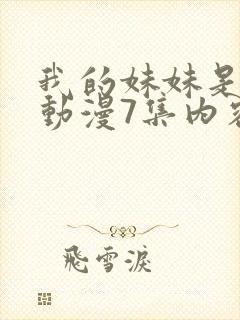 我的妹妹是
動漫7集内容
飛雪淚